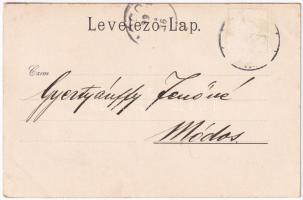 Levelező-Lap.
Czim
Gyertyánffy Jenőné
Módos.